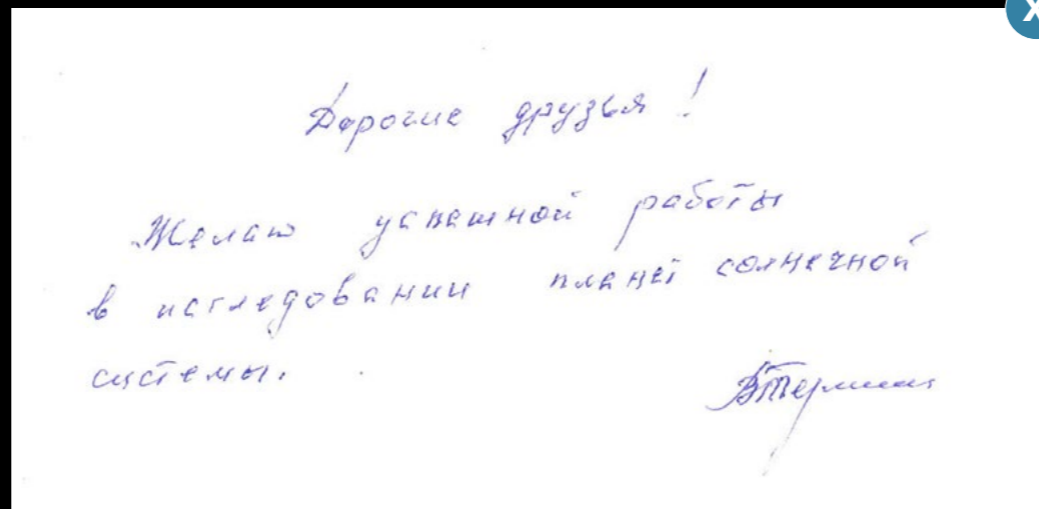 Дорогие друзья!
Желаю успешной работы
в исследовании планет солнечной
системы.
X